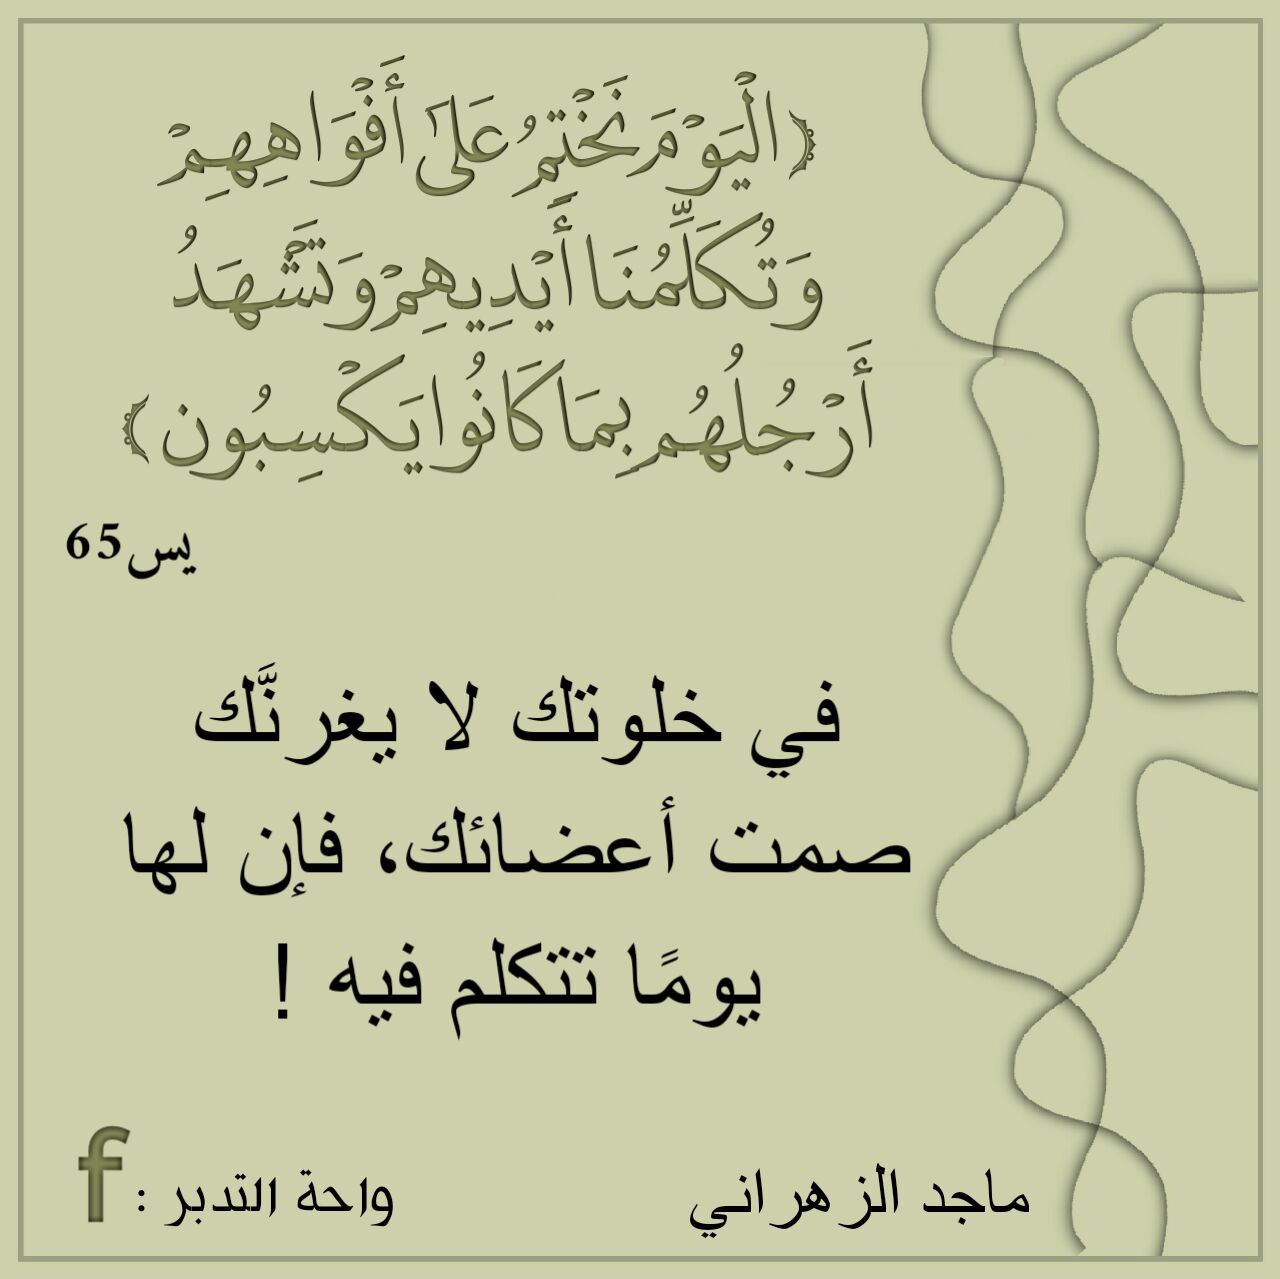 ﴿الْيَوْمَ نَخْتِمُ عَلَىٰ أَفْوَاهِهِمْ
وَتُكَلِّمُنَا أَيْدِيهِمْ وَتَشْهَدُ
أَرْجُلُهُم بِمَا كَانُوا يَكْسِبُون﴾
يس65
في خلوتك لا يغرنَّك
صمت أعضائك، فإن لها
يومًا تتكلم فيه !
ماجد الزهراني
واحة التدبر : f